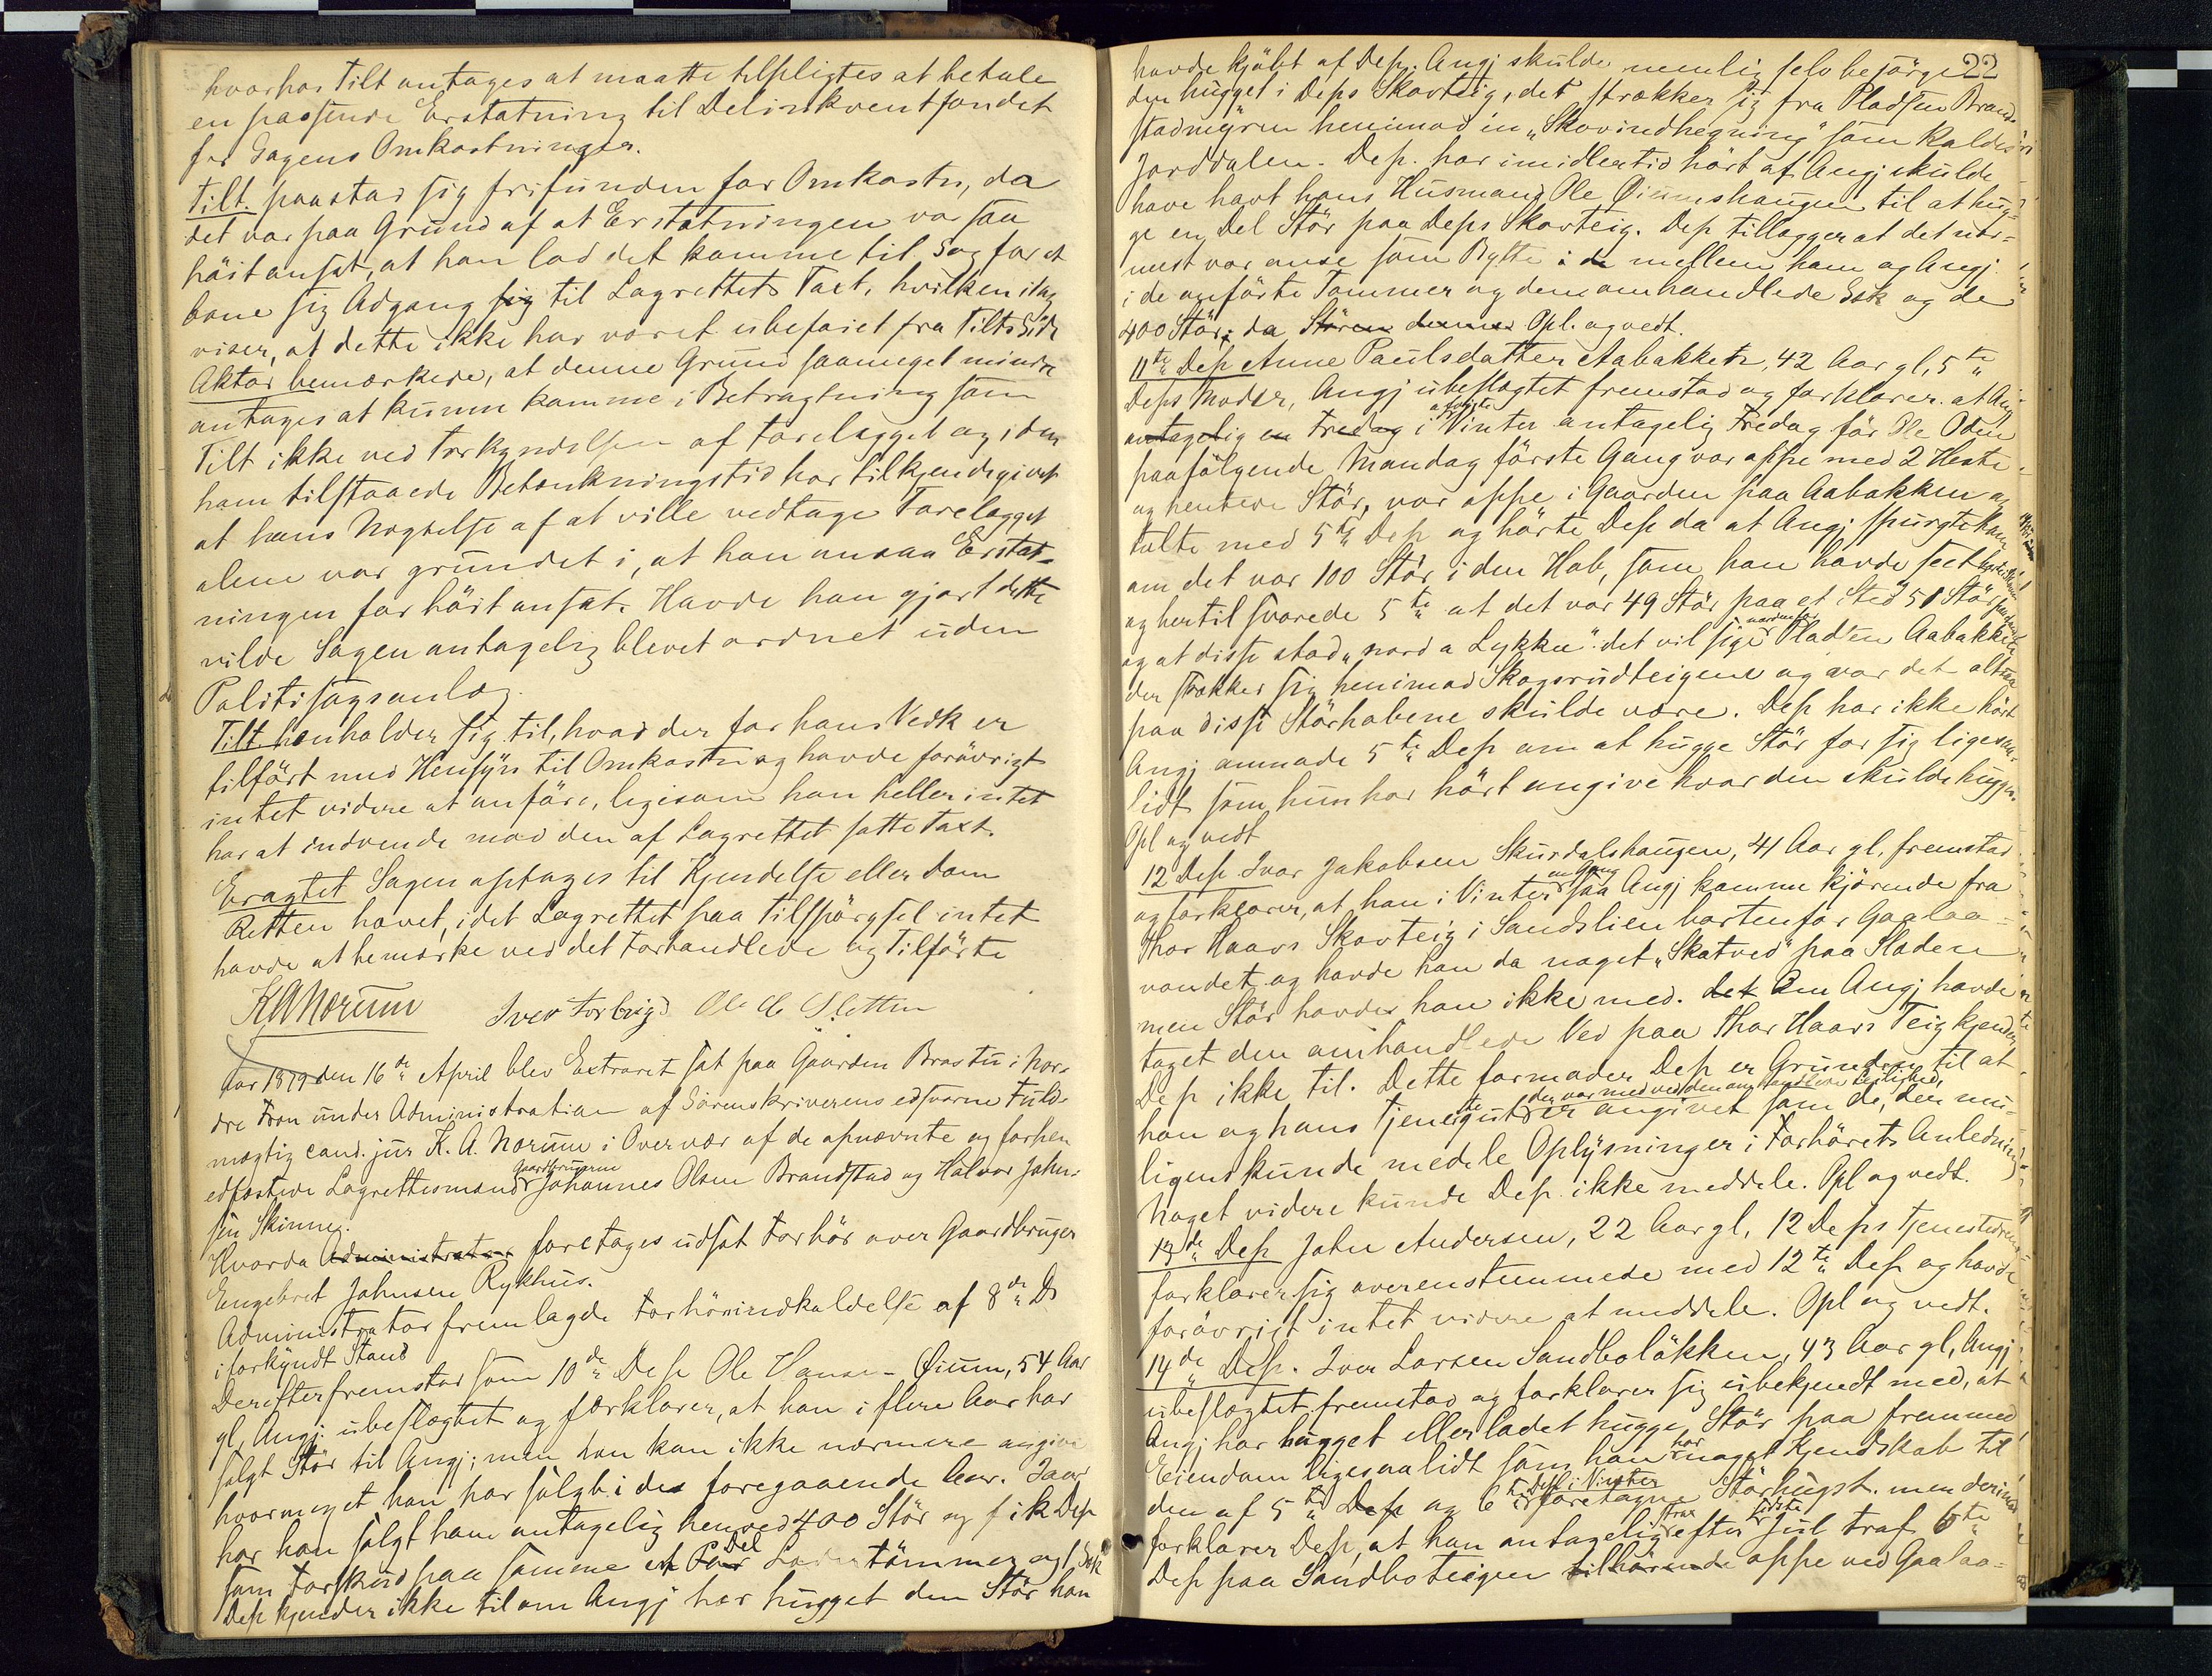 hvorhos Tilt antages at maatte tilpligtes at betale
en passende Erstatning til Delinkventfondet
for Sagens Omkostninger.
Tilt. paastod sig frifunden for Omkostn, da
det var paa Grund af at Erstatningen var saa
höit ansat, at han lod det komme til Sag for at
bane sig Adgang sig til Lagrettets Taxt, hvilken idag
viser, at dette ikke har været ubeföiet fra Tilts Side
Aktor bemærkede, at denne Grund saameget mindre
antages at kunne komme i Betragtning som
Tilt ikke ved Forkyndelsen af Forelægget og i den
ham tilstaaede Betænkningstid har tilkjendegivet
at hans Nægtelse af at ville vedtage Forelægget
alene var grundet i, at han ansaa Erstat-
ningen for höit ansat. Havde han gjort dette
vilde Sagen antagelig blevet ordnet uden
Politisagsanlæg.
Tilt. henholder sig til, hvad der for hans Vedk er
tilfört med Hensyn til Omkostn og havde forövrigt
intet videre at anföre, ligesom han heller intet
har at indvende mod den af Lagrettet satte Taxt.
Eragtet Sagen optages til Kjendelse eller Dom
Retten hævet, idet Lagrettet paa Tilspörgsel intet
havde at bemærke ved det Forhandlede og Tilförte
K A Norum Iver Forbrigd Ole O Sletten
Aar 1879 den 16de April blev Extraret sat paa Gaarden Brastu i Nor-
dre Fron under Administration af Sorenskriverens edsvorne Fuld-
mægtig cand. jur K. A. Norum i Overvær af de opnævnte og forhen
edfæstede Lagrettesmænd gaardbrugerne Johannes Olsen Brandstad og Halvor John-
sen Skinne.
Hvorda Administrator foretages udsat Forhör over Gaardbruger
Engebret Johnsen Rykhus.
Administrator fremlagde Forhörsindkaldelse af 8de Ds
i forkyndt Stand
Derefter fremstod som 10de Dep Ole Hansen Öium, 54 Aar
gl, Angj. ubeslægtet og forklarer, at han i flere Aar har
solgt Stör til Angj; men han kan ikke nærmere angive
hvormeget han har solgt i de foregaaende Aar. Iaar
har han solgt ham antagelig henved 400 Stör og fik Dep
som Forskud paa samme et Par Del tömmer og 1 Sæk
Dep kjender ikke til om Angj har hugget den Stör han
22
havde kjöbt af Dep. Angj skulde nemlig selv besörge
den hugget i Deps Skovteig, det strækker sig fra Pladsen Brand-
stadmyren henimod en "Skovindhegning" som kaldes
Jorddalen. Dep. har imidlertid hört af Angj skulde
have havt hans Husmand Ole Öiumshaugen til at hug-
ge en Del Stör paa Deps Skovteig. Dep tillægger at det nær-
mest var anse som Bytte i de mellem ham og Angj
i de anförte Tömmer og den omhandlede Sæk og de
400 Stör; da Stören denne Opl. og vedt.
11te Dep Anne Paulsdatter Aabakken, 42 Aar gl, 5te
Deps Moder, Angj ubeslægtet fremstod og forklarer at Angj
antagelig en Fredag i afvigte Vinter antagelig Fredag för Ole Öien
paafölgende Mandag förste Gang var oppe med 2 Heste
og hentede Stör, var oppe i Gaarden paa Aabakken og
talte med 5te Dep og hörte Dep da at Angj spurgte ham
om det var 100 Stör i den Hob, som han havde seet
og hertil svarede 5te at det var 49 Stör paa et Sted 51 Stör
og at disse stod "nord a Lykku" det vil sige nordenfor Pladsen Aabakken
der strækker sig henimod Skogsrudteigene og var det altsaa
paa disse Störhobene skulde være. Dep har ikke hört
Angj anmode 5te Dep om at hugge Stör for sig ligesaa
lidt som hun har hört angive hvor den skulde hugges.
Opl og vedt
12 Dep Ivar Jakobsen Skurdalshaugen, 41 Aar gl, fremstod
og forklarer, at han i Vinter en Gang saa Angj komme kjörende fra
Thor Haavs Skovteig i Sandslien bortenfor Gaalaa-
vandet og havde han da noget "Skatved" paa Slæden
men Stör havde han ikke med. det Om Angj havde
taget den omhandlede Ved paa Thor Haavs Teig kjender
Dep ikke til. Dette formoder Dep er Grunden til at
han og hans Tjenestegut der var med ved den omhandlede Leilighed, er angivet som de, der mu-
ligens kunde meddele Oplysninger i Forhörets Anledning
Noget videre kunde Dep. ikke meddele. Opl og vedt.
13de Dep John Andersen, 22 Aar gl, 12 Deps Tjenestedreng
forklarer sig overensstemmende med 12te Dep og havde
forövrigt intet videre at meddele. Opl og vedt.
14de Dep. Iver Larsen Sandbolökken, 43 Aar gl, Angj
ubeslægtet fremstod og forklarer sig ubekjendt med, at
Angj har hugget eller ladet hugge Stör paa fremmed
Eiendom ligesaalidt som han har noget Kjendskab til
den af 5te Dep og 6te Dep i Vinter foretagne Störhugst. men derimod
forklarer Dep, at han antagelig strax efter sidste Jul traf 6te
Dep paa Sandboteigen tilhörende oppe ved Gaalaa-